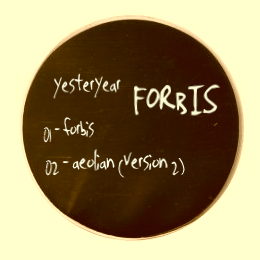 yesteryear FORBIS
01-forbis
02-aeolian (version 2)